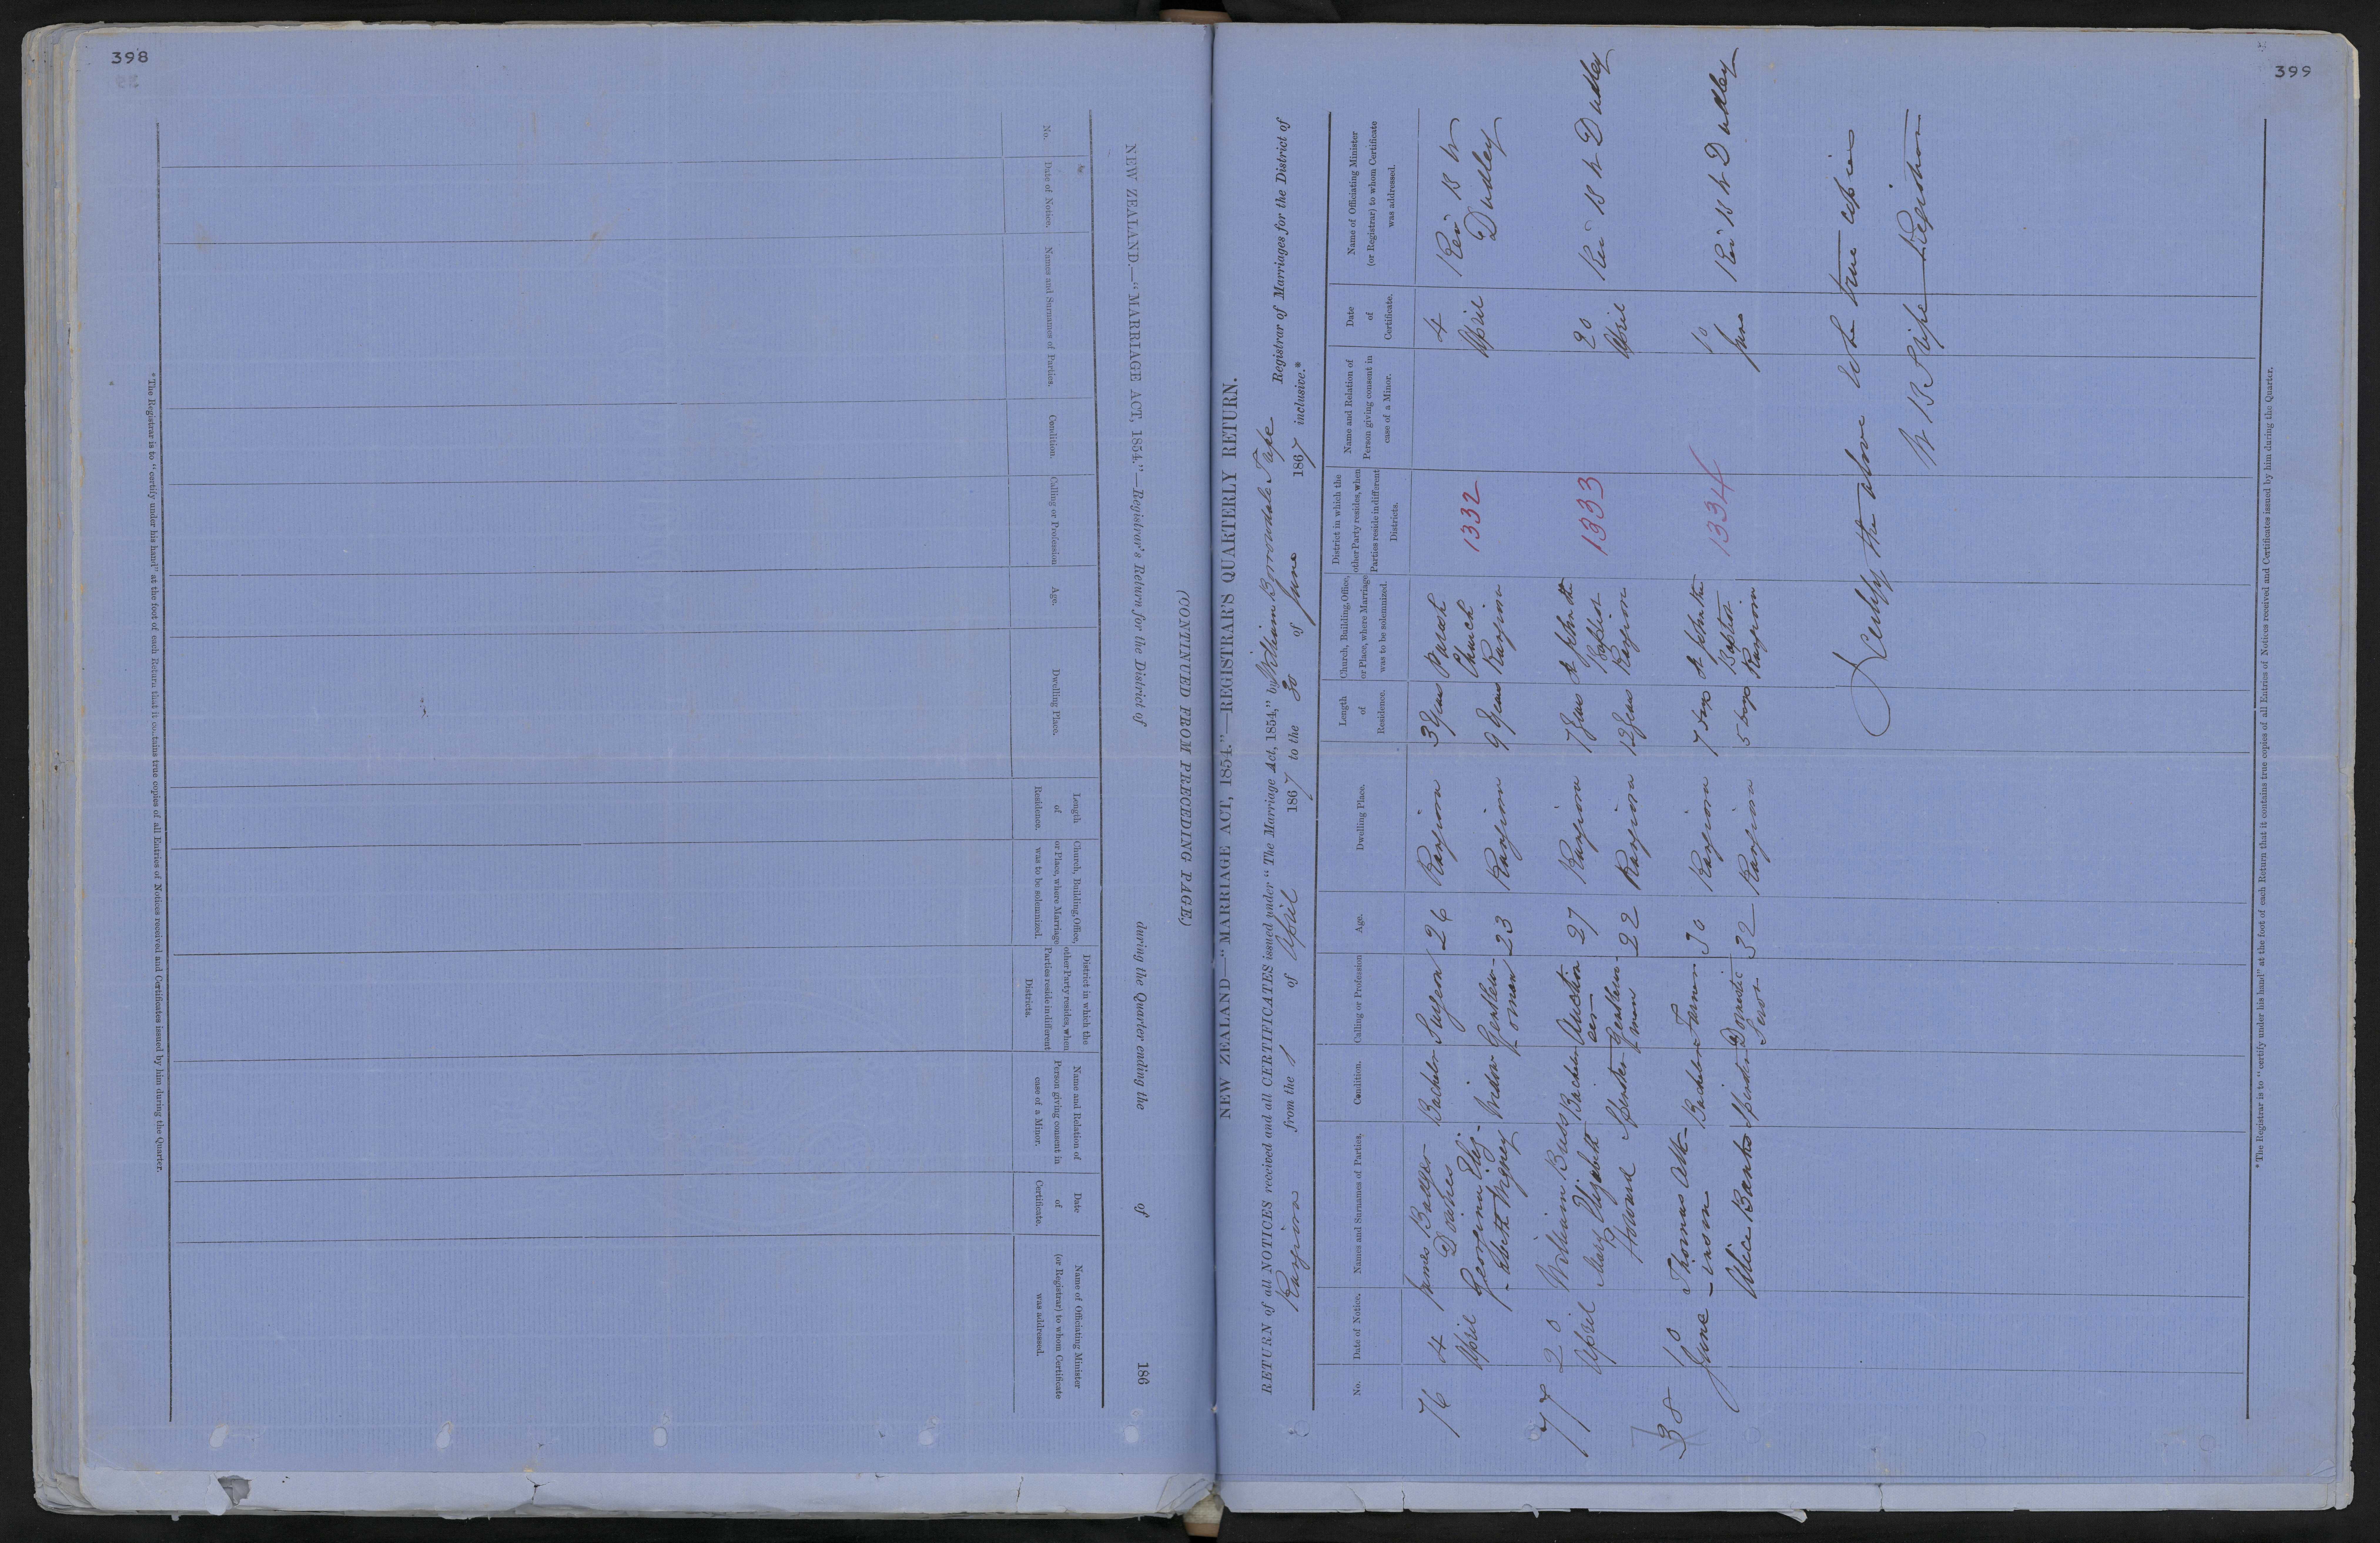 398
NEW ZEALAND.—"MARRIAGE ACT, 1854."—Registrar's Return for the District of during the Quarter ending the of 186
(CONTINUED FROM PRECEDING PAGE.)
No.
Date of Notice.
Names and Surnames of Parties.
Condition.
Calling or Profession
Age.
Dwelling Place.
Length of Residence.
Church, Building, Office, or Place, where Marriage was to be solemnized.
District in which the other Party resides, when Parties reside in different Districts.
Name and Relation of Person giving consent in case of a Minor.
Date of Certificate.
Name of Officiating Minister (or Registrar) to whom Certificate was addressed.
*The Registrar is to "certify under his hand" at the foot of each Return that it contains true copies of all Entries of Notices received and Certificates issued by him during the Quarter.
399
NEW ZEALAND—"MARRIAGE ACT, 1854."—REGISTRAR'S QUARTERLY RETURN.
RETURN of all NOTICES received and all CERTIFICATES issued under "The Marriage Act, 1854," by William Borrowdale Tape Registrar of Marriages for the District of
Rangiora from the 1 of April 1867 to the 30 of June 1867 inclusive.*
No.
Date of Notice.
Names and Surnames of Parties.
Condition.
Calling or Profession
Age.
Dwelling Place.
Length of Residence.
Church, Building, Office, or Place, where Marriage was to be solemnized.
District in which the other Party resides, when Parties reside in different Districts.
Name and Relation of Person giving consent in case of a Minor.
Date of Certificate.
Name of Officiating Minister (or Registrar) to whom Certificate was addressed.
76 4 April James Badger Davies Bachelor Surgeon 26 Rangiora 3 Years Parish Church Rangiora 1332 4 April Rev B W Dudley
Georgina Eliz-abeth Widow Gentlewoman 23 Rangiora 9 Years
77 20 April William Buss Bachelor Auctioneer 27 Rangiora 7 Years St John the Baptist Rangiora 1333 20 April Rev B W Dudley
Mary Elizabeth Howard Spinster Gentlewoman 22 Rangiora 12 Years
78 10 June Thomas Atk-inson Bachelor Farmer 30 Rangiora 7 Days St John the Baptist Rangiora 1334 10 June Rev B W Dudley
Alice Banks Spinster Domestic Servt 32 Rangiora 5 Days
I certify the above to be true copies
W B Tape Registrar
*The Registrar is to "certify under his hand" at the foot of each Return that it contains true copies of all Entries of Notices received and Certificates issued by him during the Quarter.